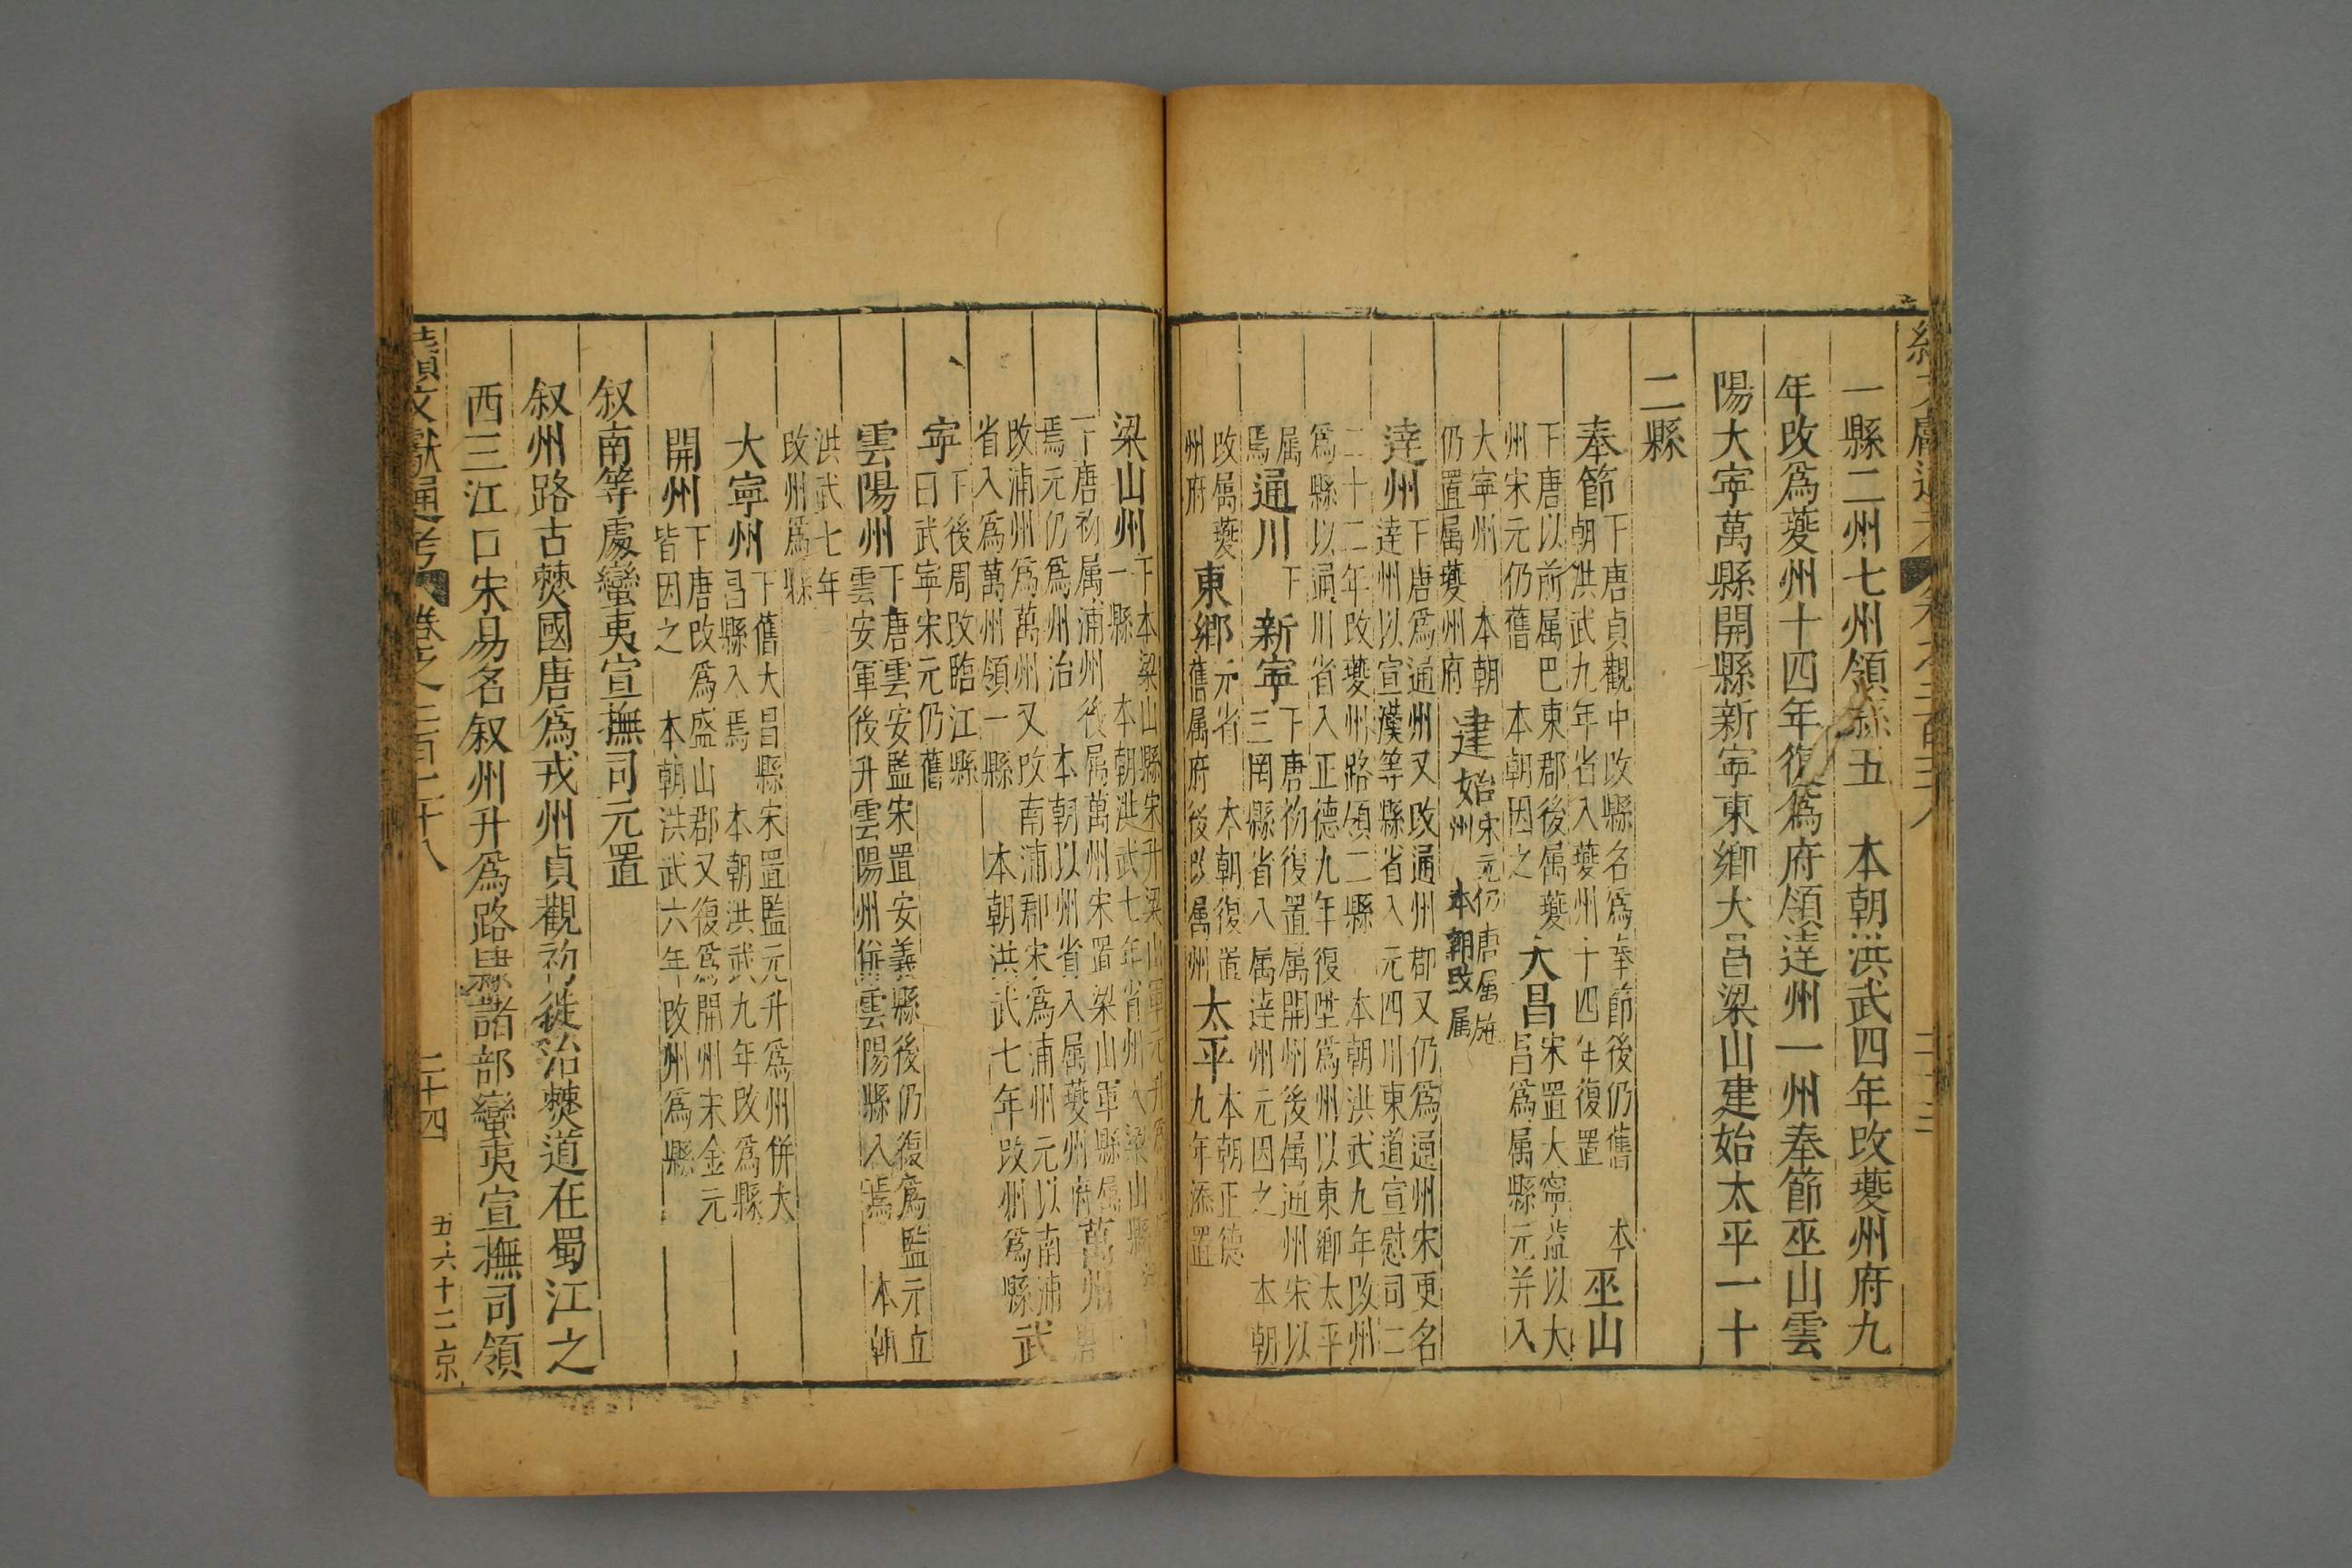 一縣二州七州領縣五　本朝洪武四年改夔州府九
年改爲夔州十四年復爲府領達州一州奉節巫山雲
陽大寧萬縣開縣新寧東鄉大昌梁山建始太平一十
二縣
奉節下唐貞觀中改縣名爲奉節後仍舊　本
朝洪武九年省入夔州十四年復置巫山
下唐以前属巴東郡後属夔
州宋元仍舊　本朝因之大昌宋置大寧監以大
昌爲属縣元并入
大寧州　本朝
仍置属夔州府建始宋元仍唐属施
州　本朝改属
達州下唐爲通州又改通州郡又仍爲通州宋更名
達州以宣漢等縣省入元四川東道宣慰司二
二十二年改夔州路領二縣　本朝洪武九年改州
爲縣以通川省入正德九年復陞爲州以東鄉太平
属
焉通川下新寧下唐初復置属開州後属通州宋以
三岡縣省入属達州元因之　本朝
改属夔
州府東鄉元省　本朝復置
舊属府後改属州太平本朝正德
九年添置
梁山州下本梁山縣宋升梁山軍元升爲州
一縣　本朝洪武七年省州入梁山縣
萬州下唐初属浦州後属萬州宋置梁山軍縣属
焉元仍爲州治　本朝以州省入属夔州府
改浦州爲萬州又改南浦郡宋爲浦州元以南浦
省入爲萬州領一縣　本朝洪武七年改州爲縣武
寧下後周改臨江縣
曰武寧宋元仍舊
雲陽州下唐雲安監宋置安義縣後仍復爲監元立
雲安軍後升雲陽州併雲陽縣入焉　本朝
洪武七年
改州爲縣
大寧州下舊大昌縣宋置監元升爲州併大
昌縣入焉　本朝洪武九年改爲縣
開州下唐改爲盛山郡又復爲開州宋金元
皆因之　本朝洪武六年改州爲縣
叙南等處蠻夷宣撫司元置
叙州路古僰國唐爲戎州貞觀初徙治僰道在蜀江之
西三江口宋易名叙州升爲路隸諸部蠻夷宣撫司領
續文獻通考　卷之二百二十八　二十四　五六十二　京